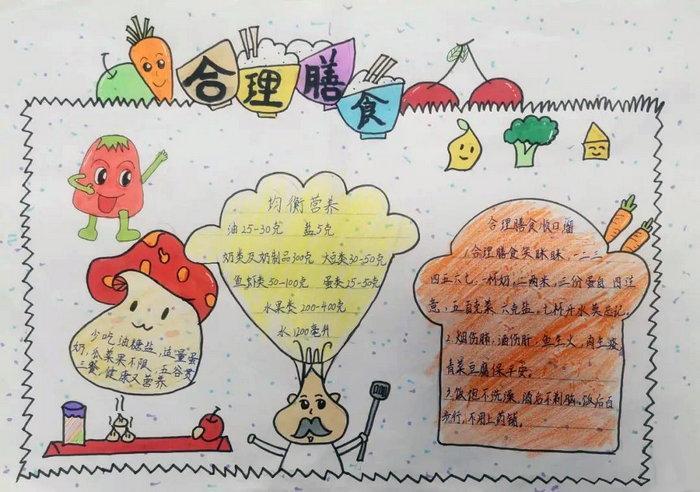 合理膳食
均衡营养
油25-30克 盐5克
奶类及奶制品300克 大豆类30-50克
鱼虾类50-100克 蛋类25-50克
水果类200-400克
水1200毫升
少吃油糖盐,适量蛋
奶,瓜菜果不限,五谷类
三餐,健康又营养
合理膳食顺口溜
1合理膳食笑眯眯,一二三
四五六七,一杯奶,二两米,三份蛋白四注
意,五百克菜六克盐,七杯开水莫忘记。
2.烟伤肺,酒伤肝,鱼生火,肉生痰,
青菜豆腐保平安。
3.饭但不洗澡,酒后不剃脑,饭后百
步行,不用上药铺。